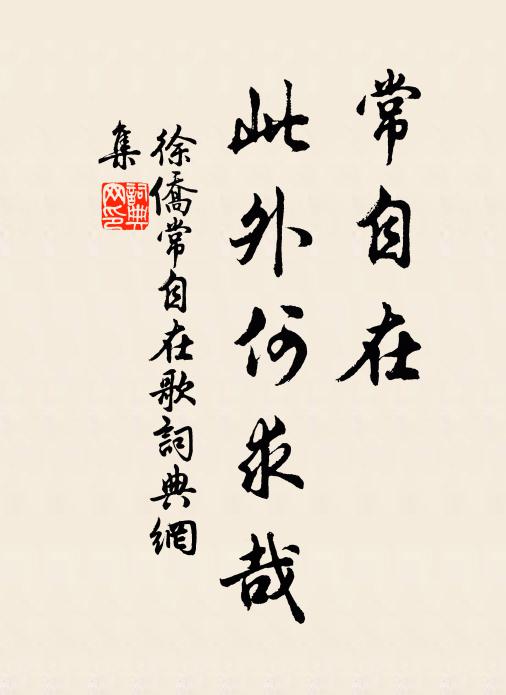 常自在
此外何求哉
徐僑常自在歌詞典網
集
詞典网印